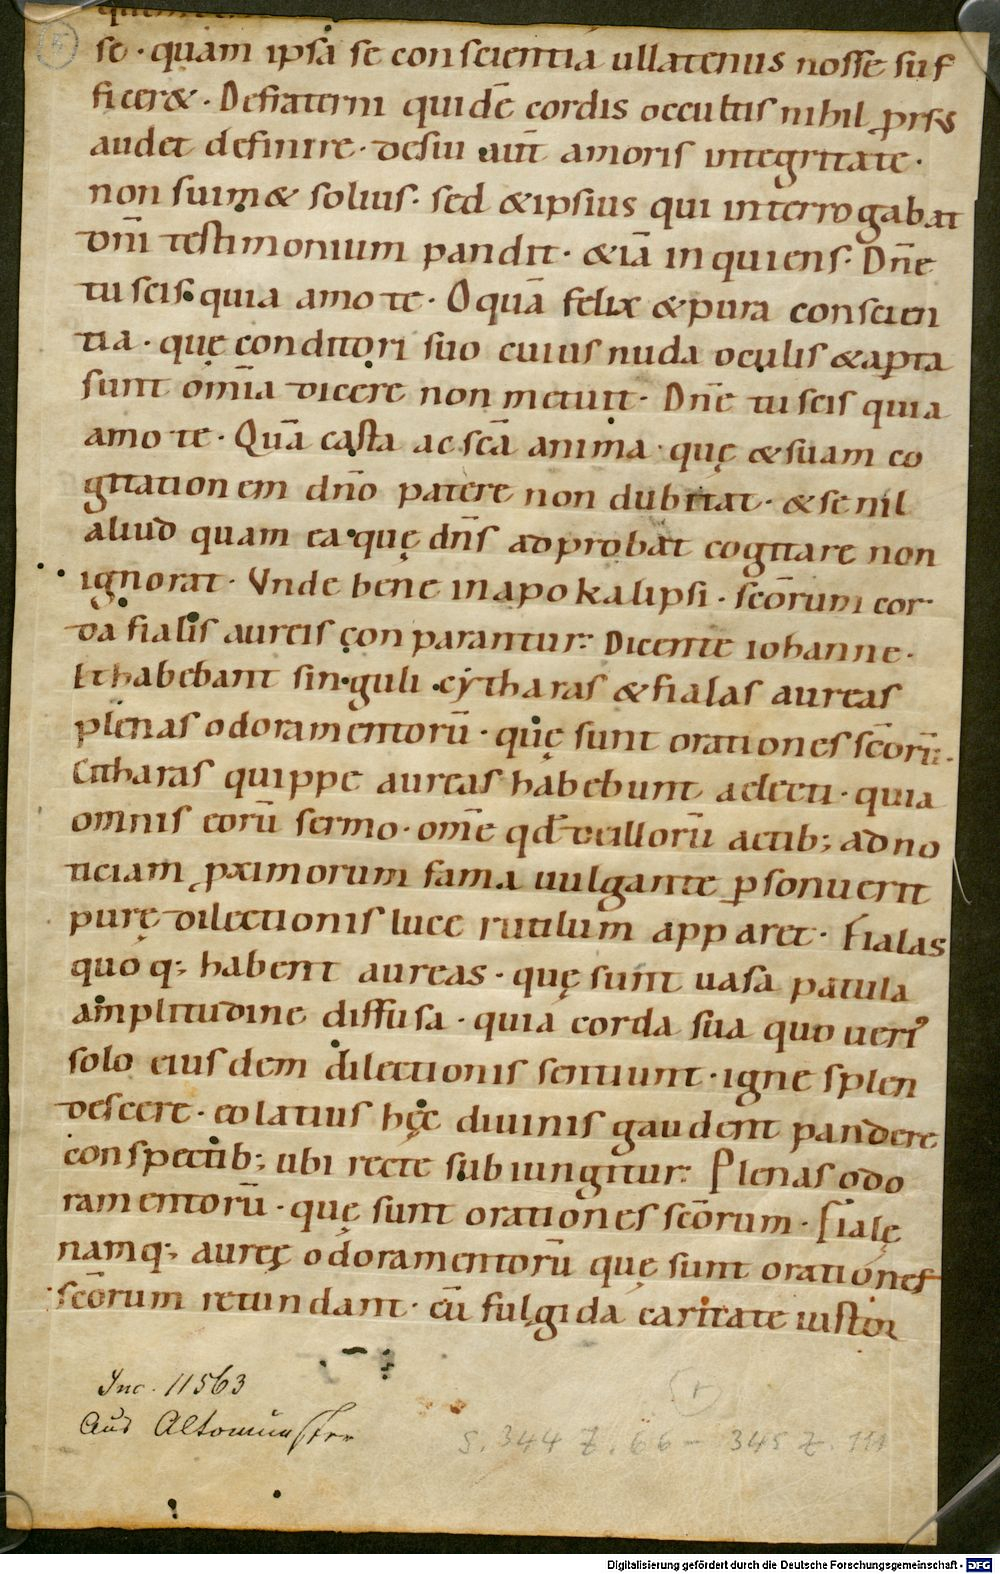 5
se · quam ipsa se conscientia ullatenus nosse suf
ficer&. Defraterni quidē cordis occultis nihil
audet definire · desui aut̄ amoris integritate ·
non suim& solius · sed &ipsius qui interrogabat
dn̄i testimonium pandit · &iā inquiens · Dn̄e
tu scis quia amo te · O quā felix &pura conscien
tia · quę conditori suo cuius nuda oculis &aꝑta
sunt om̄ia dicere non metuit · Dn̄e tu scis quia
amo te · Quā casta ac sc̄a anima · quę &suam co
gitationem dn̄o patere non dubitat · &se nil
aliud quam ea quę dn̄s adprobat cogitare non
ignorat · Vnde bene inapokalipsi · sc̄orum cor
da fialis aureis conparantur: Dicente iohanne ·
Et habebant singuli cytharas &fialas aureas
plenas odoramentorū · quę sunt orationes sc̄orū ·
Citharas quippe aureas habebunt aelecti · quia
omnis eorū sermo · om̄e qđ deillorū actib; ad no
ticiam ꝓximorum fama uulgante ꝑsonuerit
purę dilectionis luce rutilum apparet · Fialas
quoq; habent aureas · quę sunt uasa patula
amplitudine diffusa · quia corda sua quo
solo eiusdem dilectionis sentiunt · igne splen
descere · eo latius hęc diuinis gaudent pandere
conspectib; ubi recte subiungitur: Plenas odo
ramentorū · quę sunt orationes sc̄orum · Fialę
namq; aureę odoramentorū quę sunt orationes
sc̄orum retundant · cū fulgida caritate iustor
Inc. 11563
Aus Altomünster
S. 344 Z. 66 – 345 Z. 111
Digitalisierung gefördert durch die Deutsche Forschungsgemeinschaft - DFG